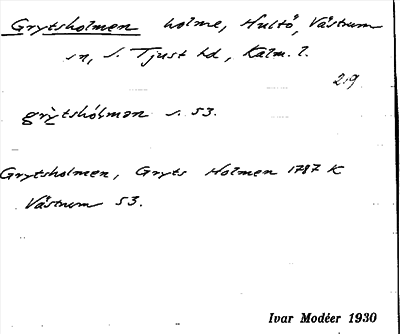 Grytsholmen holme, Hultö, Västrum
sn, S. Tjust hd, Kalm. l.
2:9
grỳtshólmən s. 53.
Grytsholmen, Gryts Holmen 1787 K
Västrum 53.
Ivar Modéer 1930